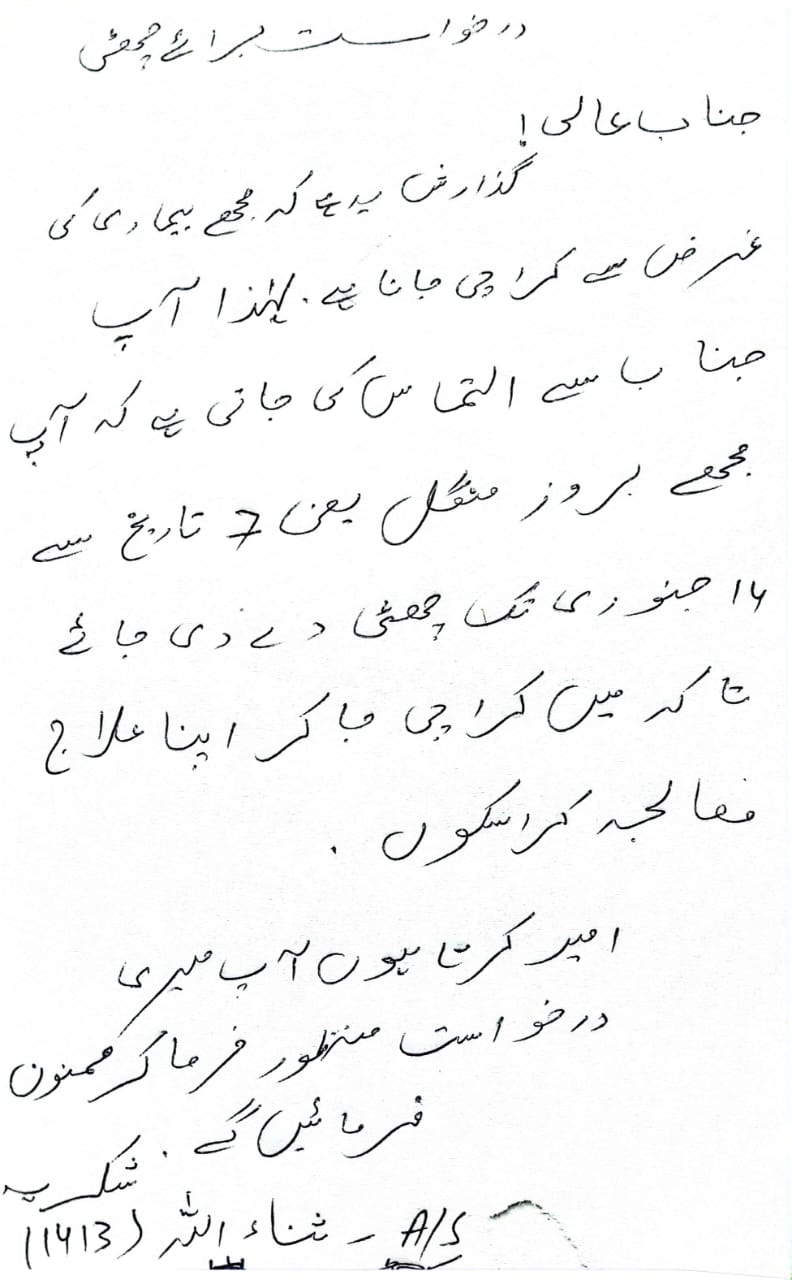 درخواست برائے چھٹی
جناب عالی!
گذارش یہ ہے کہ مجھے بیماری کی
غرض سے کراچی جانا ہے. لہٰذا آپ
جناب سے التماس کی جاتی ہے کہ آپ
مجھے بروز منگل یعنی 7 تاریخ سے
۱۴ جنوری تک چھٹی دے دی جائے
تاکہ میں کراچی جا کر اپنا علاج
معالجہ کراسکوں .
امید کرتا ہوں آپ میری
درخواست منظور فرما کر ممنون
فرمائیں گے . شکریہ
A/S - ثناء اللہ (1413)